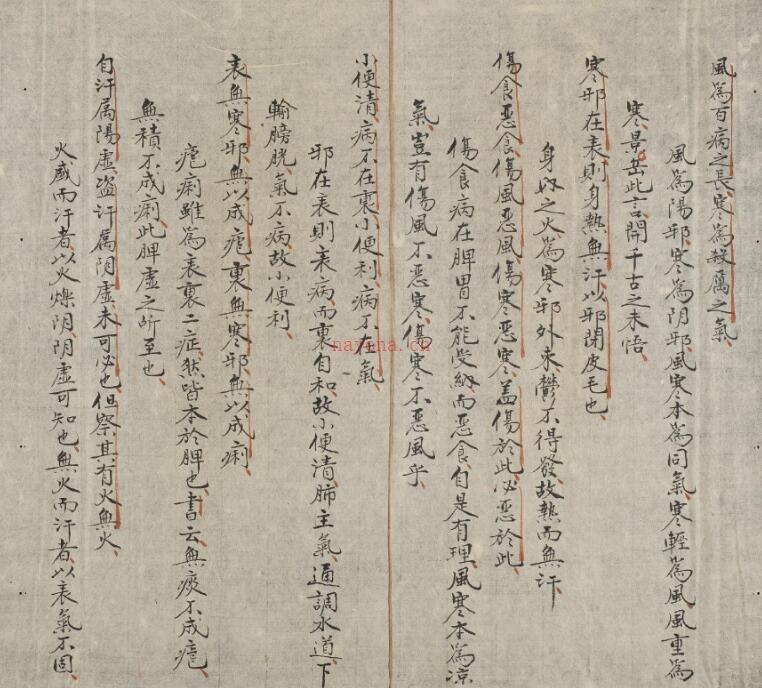 風為百病之長、寒為殺厲之氣、
風為陽邪、寒為阴邪、風寒本為同氣、寒輕為風、風重為
寒、景岳此言、開千古之未悟、
寒邪在表、則身熱無汗、以邪閉皮毛也、
身内之火、為寒邪外束、鬱不得發、故熱而無汗、
傷食惡食、傷風惡風、傷寒惡寒、盖傷於此、必惡於此、
傷食病在脾胃、不能受納而惡食、自是有理、風寒本為涼
氣、豈有傷風不惡寒、傷寒不惡風乎、
小便清、病不在裏、小便利、病不在氣、
邪在表、則表病而裏自和、故小便清、肺主氣、通調水道、下
輸膀胱、氣不病、故小便利、
表無寒邪、無以成瘧、裏無寒邪、無以成痢、
瘧痢雖為表裏二症、然皆本於脾也、書云、無痰不成瘧、
無積不成痢、此脾虛之所至也、
自汗属陽虛、盗汗属阴虛、未可必也、但察其有火無火、
火盛而汗者、以火爍阴、阴虛可知也、無火而汗者、以表氣不固、
nayona.cn